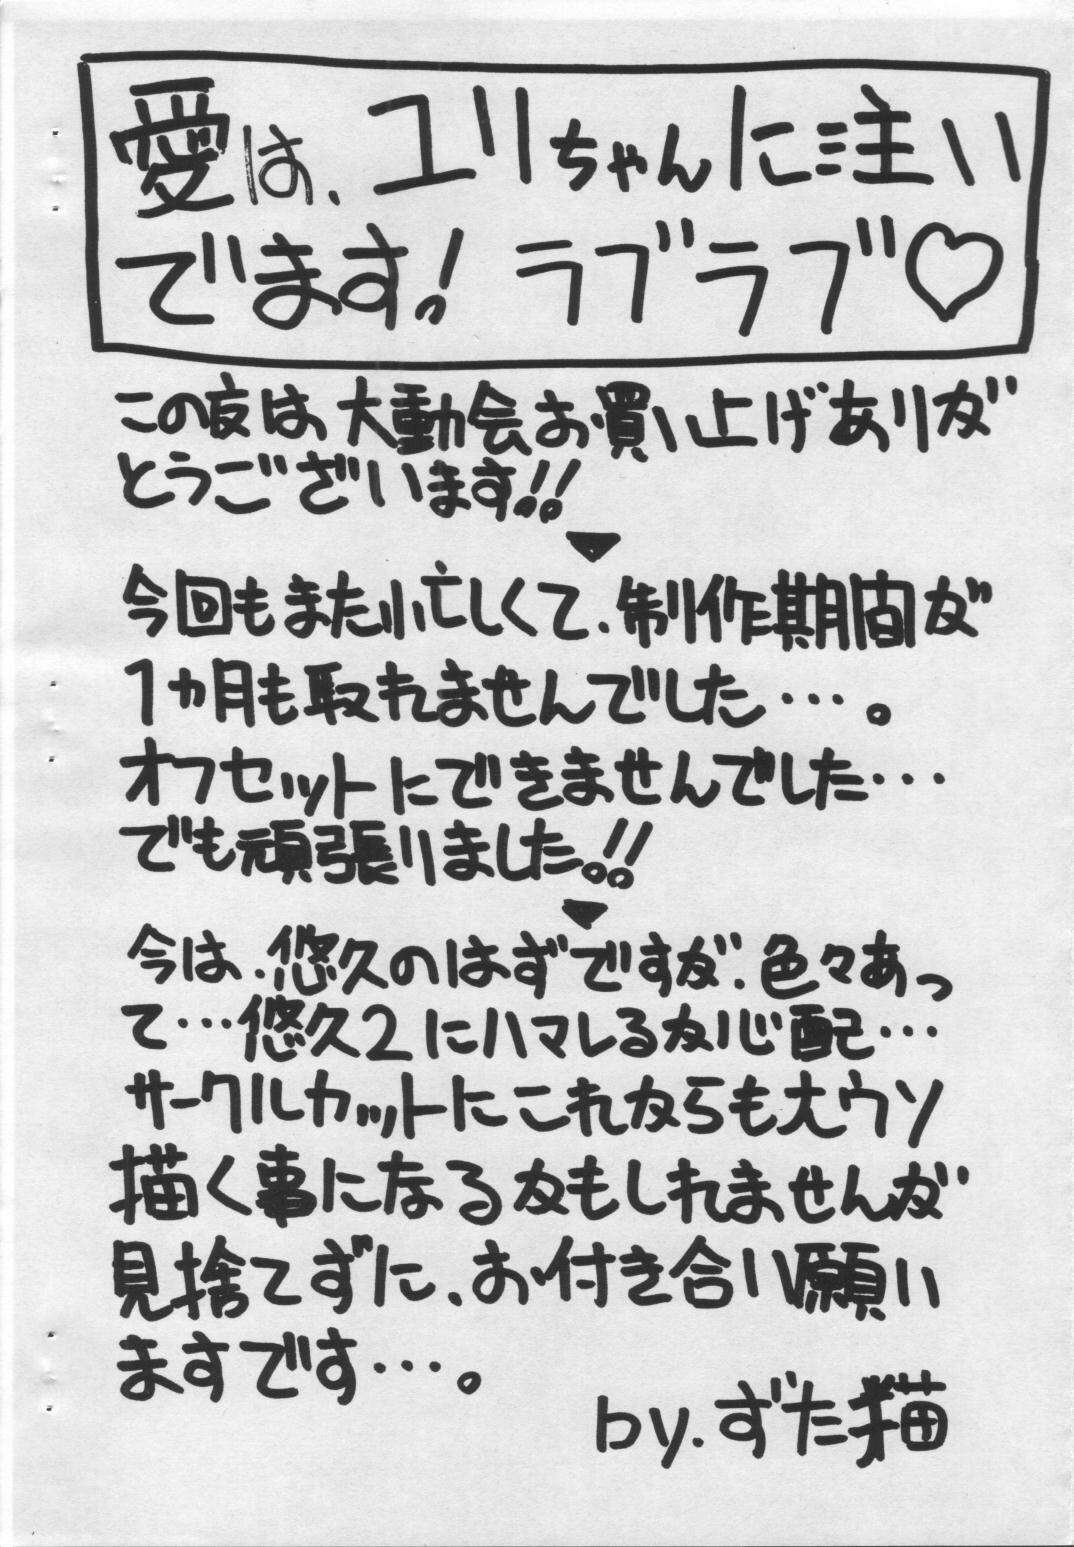 愛は、ユリちゃんに注い
でます！ラブラブ♡
この度は大動会お買い上げありが
とうございます!!
今回もまた忙しくて、制作期間が
1ヵ月も取れませんでした…。
オフセットにできませんでした…
でも頑張りました。!!
今は、悠久のはずですが、色々あっ
て…悠久2にハマレるか心配…
サークルカットにこれからも大ウソ
描く事になるかもしれませんが
見捨てずに、お付き合い願い
ますです…。
by.ずた猫